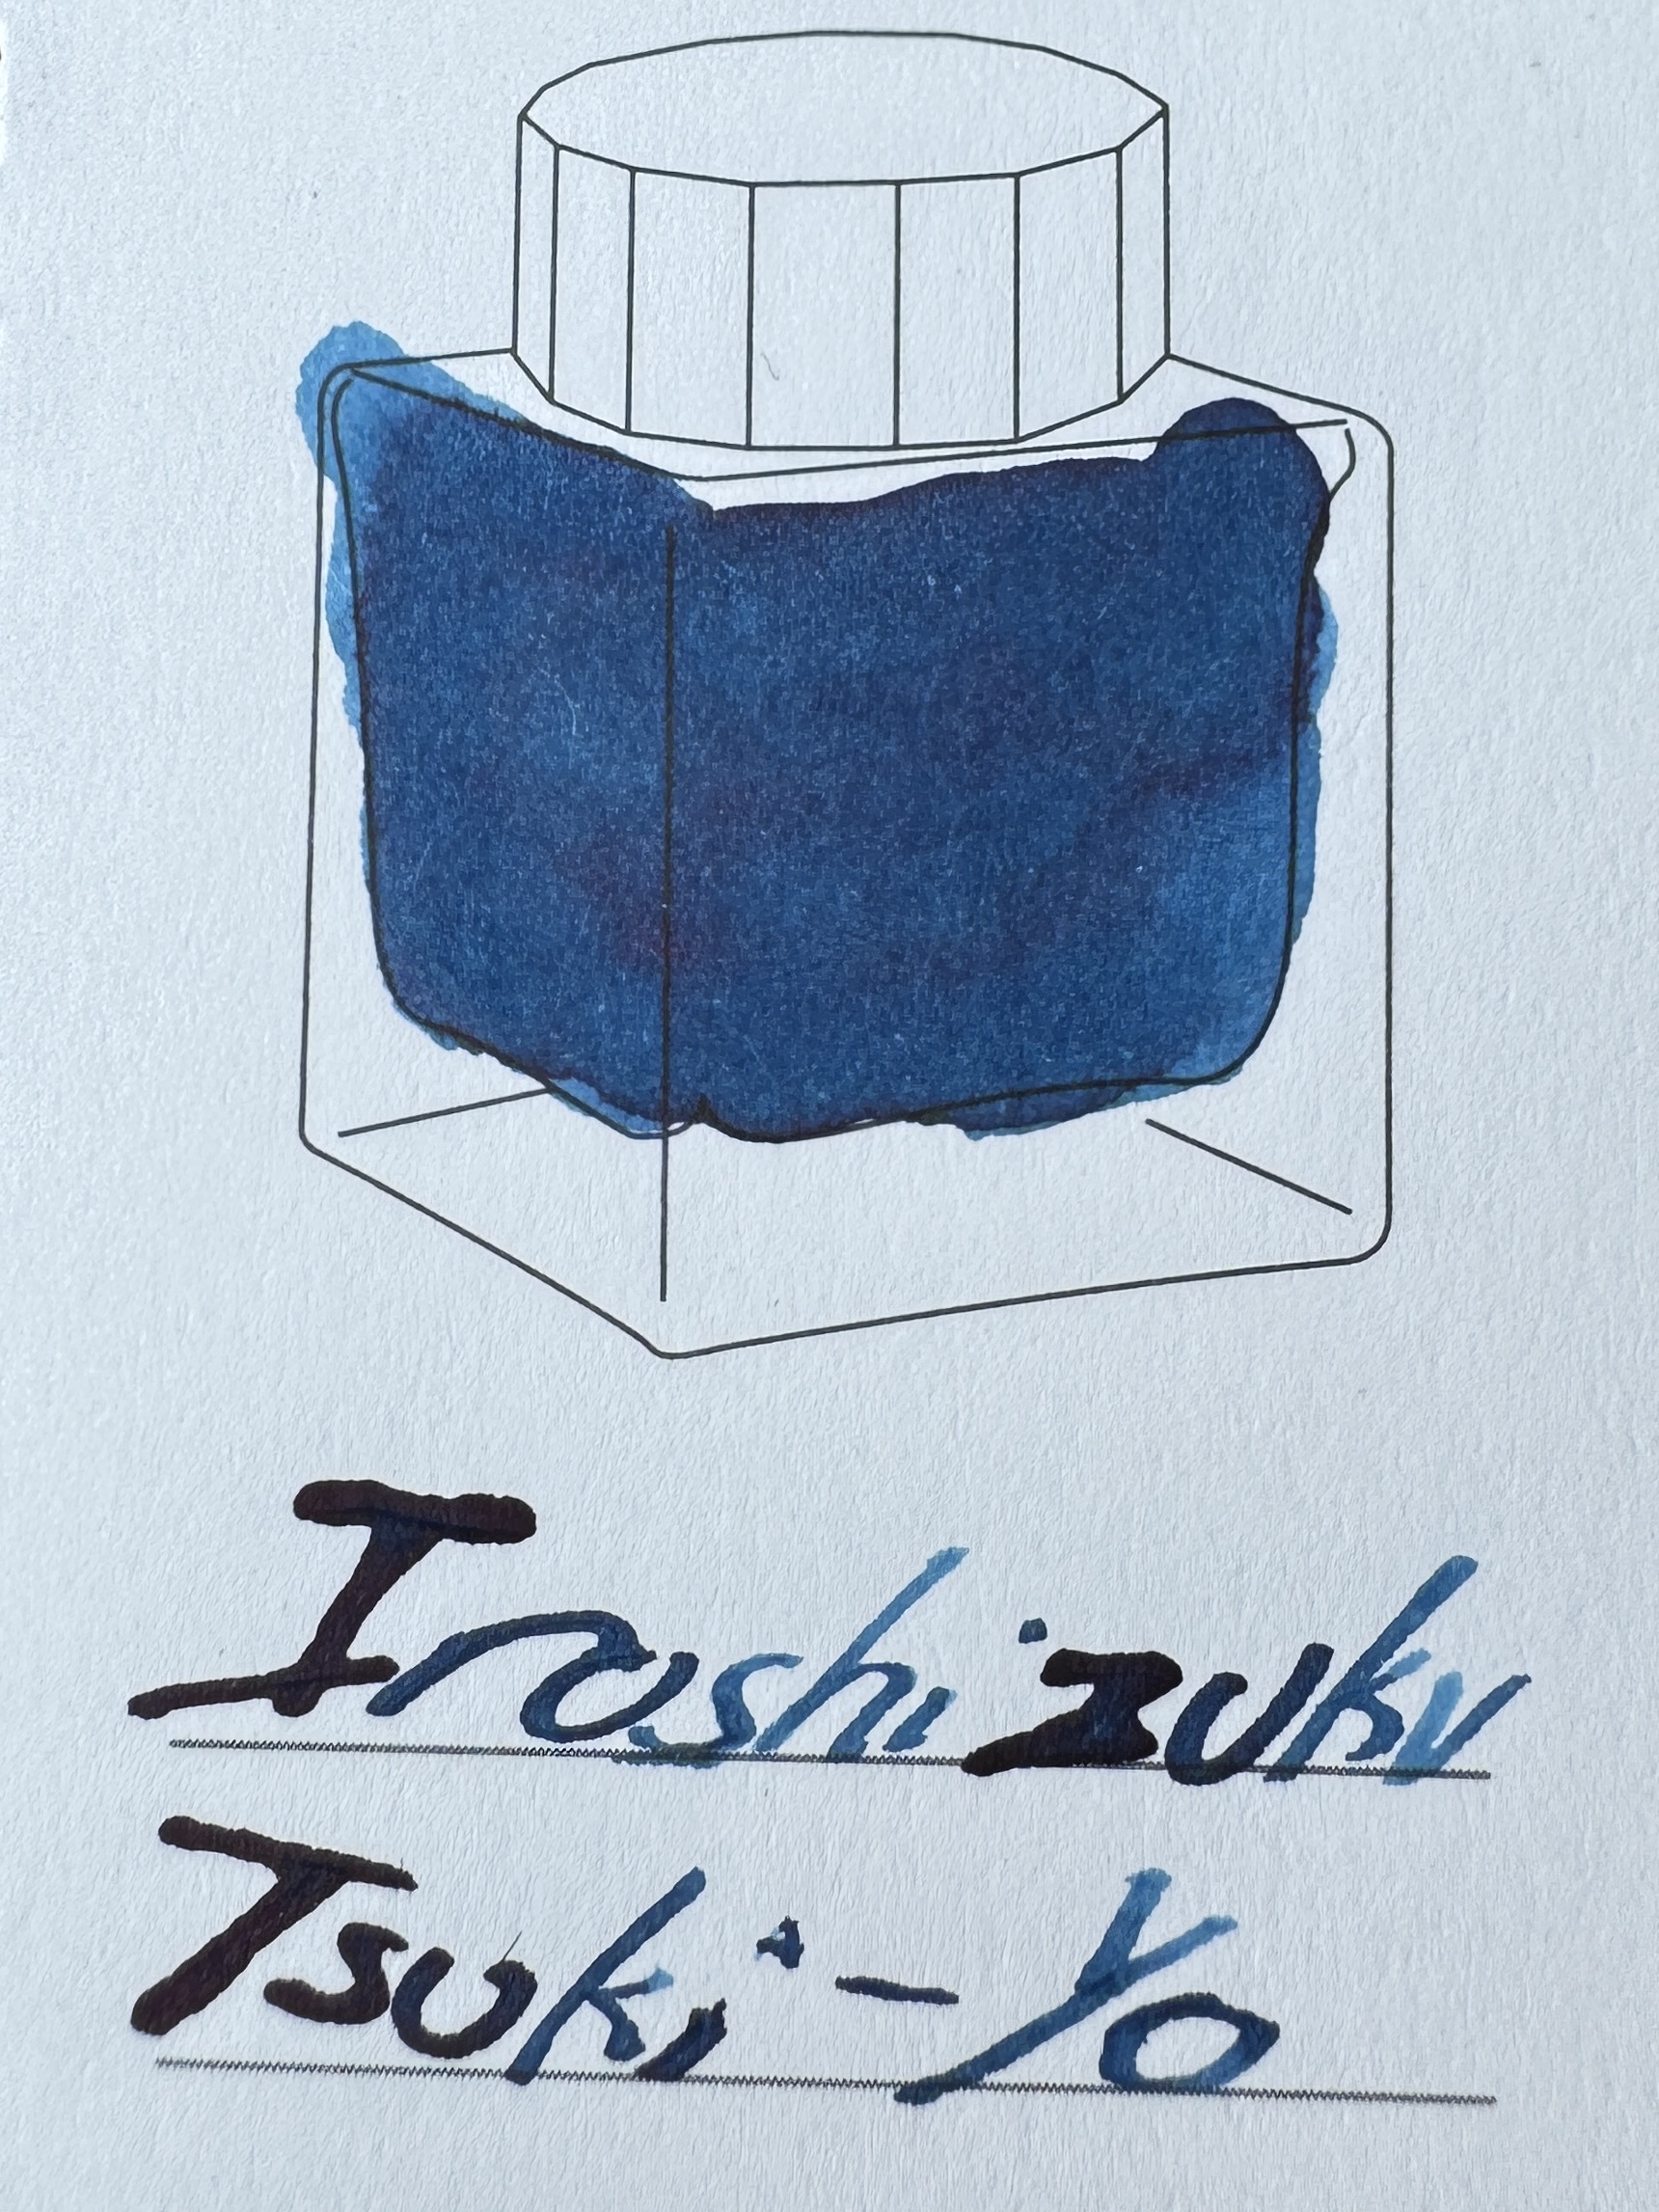 Iroshizuku
Tsuki-yo